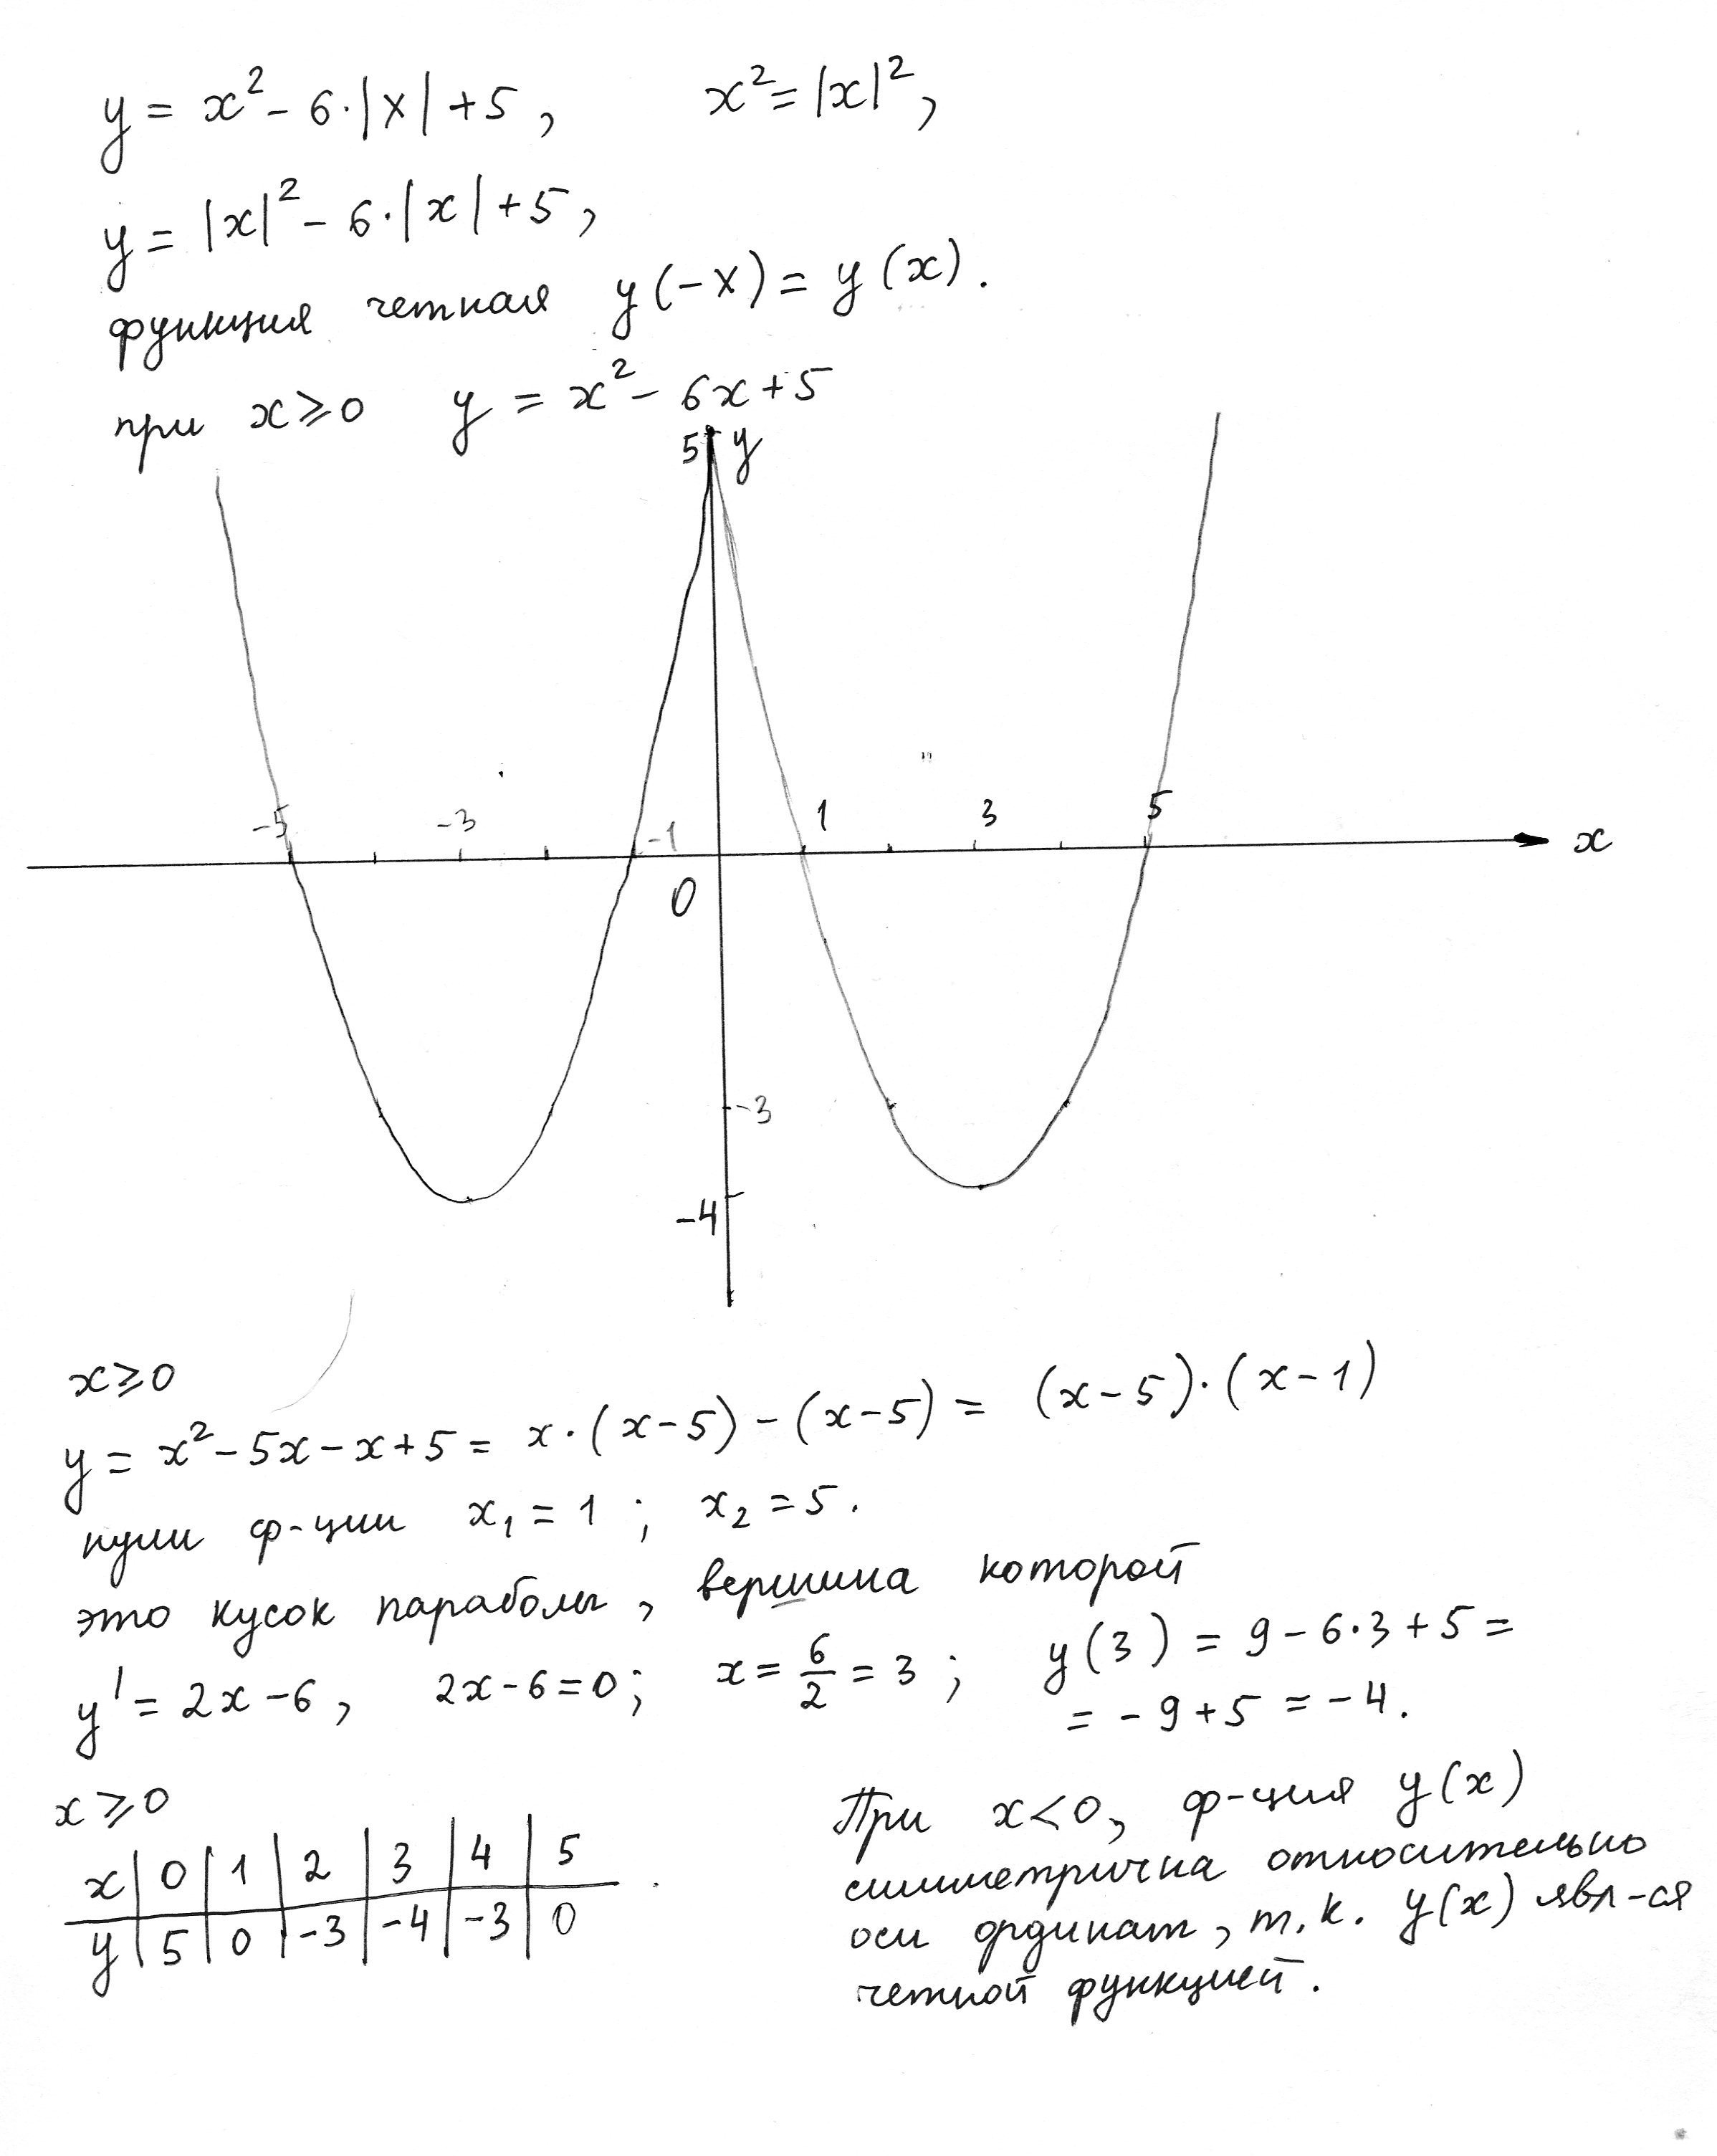 y = x² - 6·|x| + 5, x² = |x|²,
y = |x|² - 6·|x| + 5,
функция четная y(-x) = y(x).
при x ⩾ 0 y = x² - 6x + 5
5 y
-5 -3 -1 1 3 5 x
0
-3
-4
x ⩾ 0
y = x² - 5x - x + 5 = x·(x-5) - (x-5) = (x-5)·(x-1)
нули ф-ции x₁ = 1 ; x₂ = 5.
это кусок параболы, вершина которой
y' = 2x - 6, 2x - 6 = 0; x = 6/2 = 3 ; y(3) = 9 - 6·3 + 5 =
= -9 + 5 = -4.
x ⩾ 0
x | 0 | 1 | 2 | 3 | 4 | 5
y | 5 | 0 | -3 | -4 | -3 | 0
При x < 0, ф-ция y(x)
симметрична относительно
оси ординат, т.к. y(x) явл-ся
четной функцией.